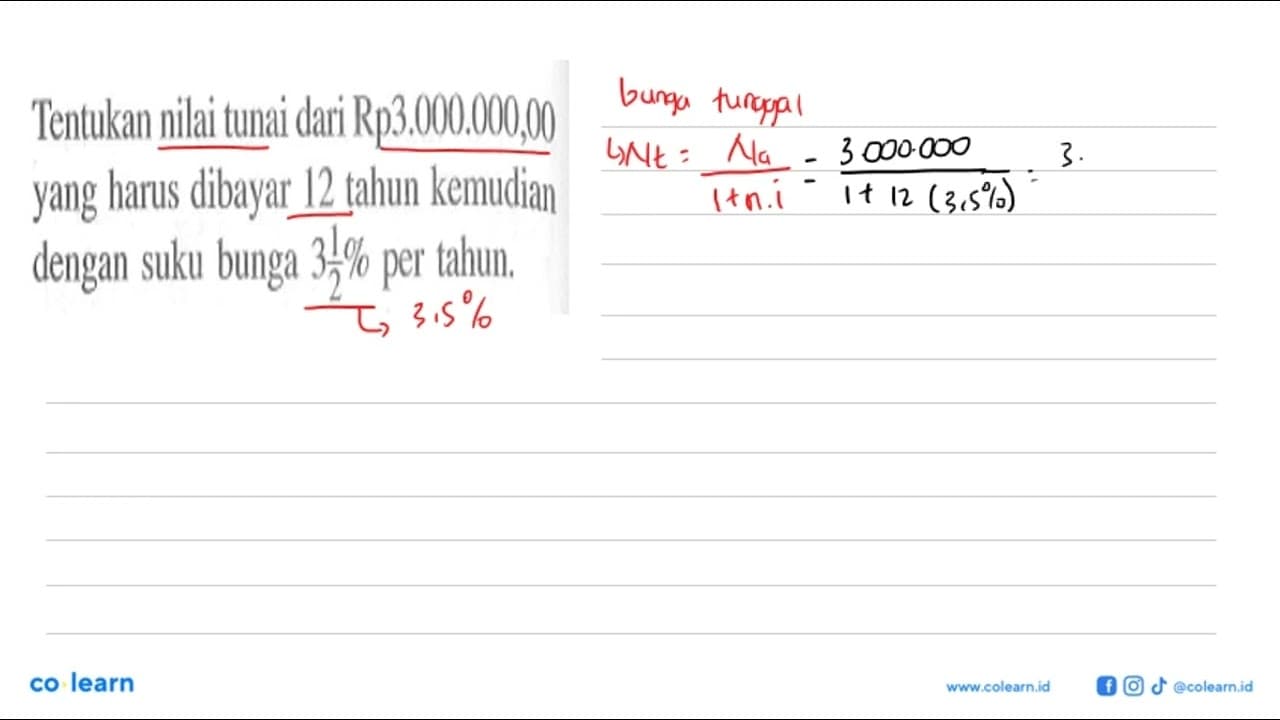 Tentukan nilai tunai dari Rp3.000.000,00
yang harus dibayar 12 tahun kemudian
dengan suku bunga 3 1/2% per tahun.
↳ 3,5%
bunga tunggal
↳Nt = Na / 1+n.i = 3.000.000 / 1 + 12 (3,5%) = 3.
co learn
www.colearn.id
@colearn.id